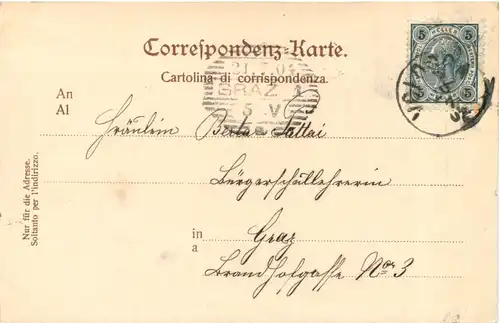 Correspondenz-Karte.
Cartolina di corrispondenza.
5 HELLER 5
5 5
GRAZ 1
5 V
An
Al
Fräulein Berta
Bürgerschullehrerin
in
a
Graz
Brandhofgasse Nro 3
Nur für die Adresse.
Soltanto per l'indirizzo.